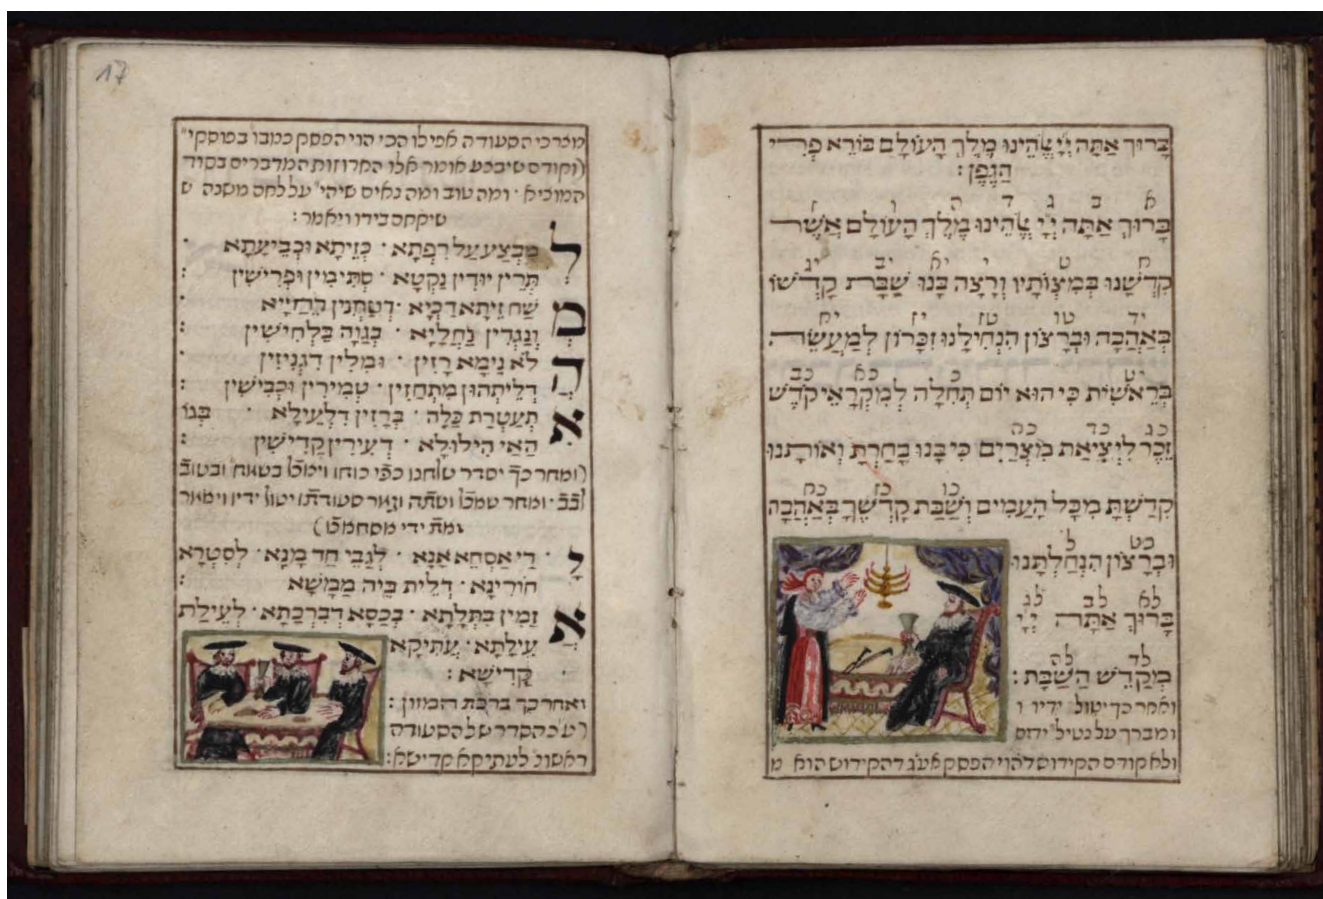 בָּרוּךְ אַתָּה יְ֯יָ אֱלֹהֵינוּ מֶלֶךְ הָעוֹלָם בּוֹרֵא פְּרִי
הַגֶּפֶן:
א ב ג ד ה ו ז
בָּרוּךְ אַתָּה יְיָ אֱלֹהֵינוּ מֶלֶךְ הָעוֹלָם אֲשֶׁר
ח ט י יא יב יג
קִדְּשָׁנוּ בְּמִצְוֹתָיו וְרָצָה בָנוּ שַׁבַּת קָדְשׁוֹ
יד טו טז יז יח
בְּאַהֲבָה וּבְרָצוֹן הִנְחִילָנוּ זִכָּרוֹן לְמַעֲשֵׂה
יט כ כא כב
בְרֵאשִׁית כִּי הוּא יוֹם תְּחִלָּה לְמִקְרָאֵי קֹדֶשׁ
כג כד כה
זֵכֶר לִיצִיאַת מִצְרַיִם כִּי בָנוּ בָחַרְתָּ וְאוֹתָנוּ
כו כז כח
קִדַּשְׁתָּ מִכָּל הָעַמִּים וְשַׁבַּת קָדְשְׁךָ בְּאַהֲבָה
כט ל
וּבְרָצוֹן הִנְחַלְתָּנוּ
לא לב לג
בָּרוּךְ אַתָּה יְיָ
לד לה
מְקַדֵּשׁ הַשַּׁבָּת:
ואחר כך יטול ידיו ו
ומברך על נטיל' ידים
ולא קודם הקידוש דהוי הפסק אע"ג דהקידוש הוא מ
17
מצרכי הסעודה אפילו הכי הוי הפסק כמבו' בפוסקי'
(וקודם שיבצע אומר אלו החרוזות המדברים בסוד
המוציא · ומה טוב ומה נאים שיהי' על לחם משנה ש
שיקחם בידו ויאמר:
לְ מְבַצַּע עַל רִפְתָּא · כְּזֵיתָא וּכְבֵיעֲתָא ·
תְּרֵין יוּדִין נַקְטָא · סְתִימִין וּפְרִישִׁין :
מְ שַׁח זֵיתָא דַכְיָא · דְטַחֲנִין רֵחַיָּא ·
וְנַגְדִין נַחֲלַיָּא · בְּגַוָּהּ בִּלְחִישִׁין :
הֲ לֹא נֵימָא רָזִין · וּמִלִּין דִּגְנִיזִין ·
דְלֵיתְהוֹן מִתְחַזִין · טְמִירִין וּכְבִישִׁין :
אִ תְעַטְּרַת כַּלָּה · בְּרָזִין דִּלְעֵילָא · בְּגוֹ
הַאי הִילוּלָא · דְעִירִין קַדִּישִׁין :
(ואחר כך יסדר שלחנו כפי כוחו ויאכל בשמח' ובטוב
לבב · ואחר שאכל ושתה וגמר סעודתו יטול ידיו ויאמר
אחר ידי מסתמא)
יָ דַי אַסְחֵא אֲנָא · לְגַבֵּי חַד מָנָא · לְסִטְרָא
חוֹרִינָא · דְלֵית בֵּיהּ מַמָּשָׁא :
אֲ זַמִּין בִּתְלָתָא · בְּכָסָא דְבִרְכָתָא · לְעֵילַת
עִילָתָא · עַתִּיקָא
קַדִּישָׁא :
ואחר כך ברכת המזון :
(ע"כ הסדר של הסעודה
ראשונ' לעתיקא קדישא: